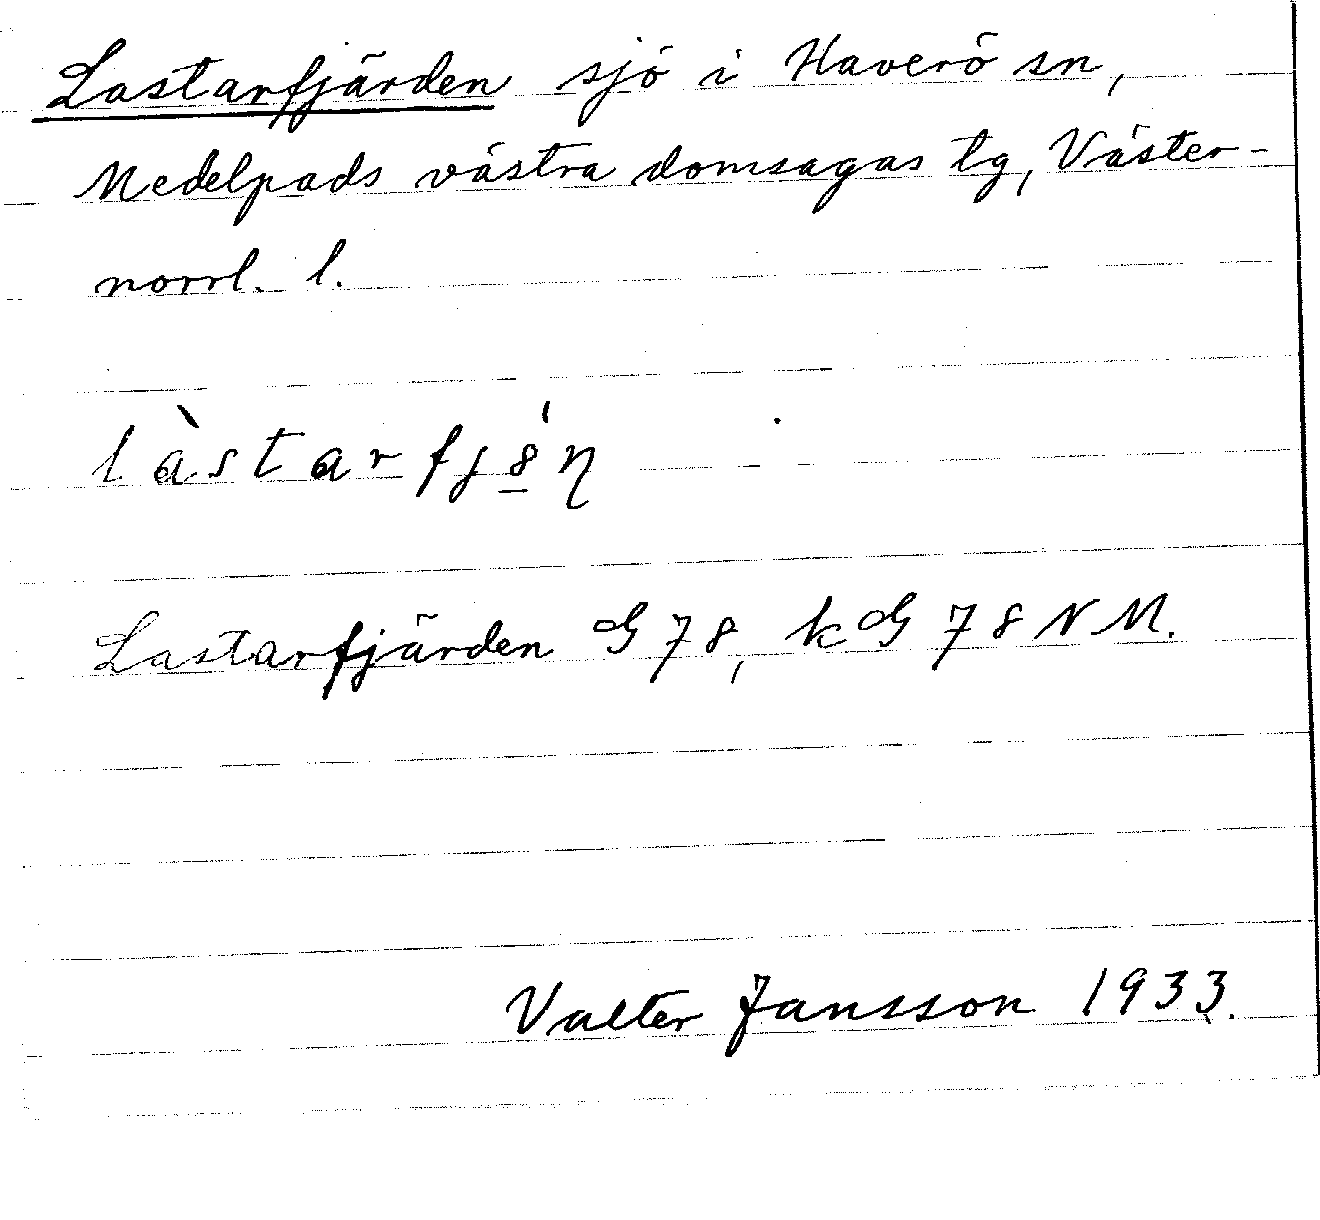 Lastarfjärden sjö i Haverö sn,
Medelpads västra domsagas tg, Väster-
norrl. l.
làstarfjn
Lastarfjärden G 78, kG 78 NM.
Valter Jansson 1933.